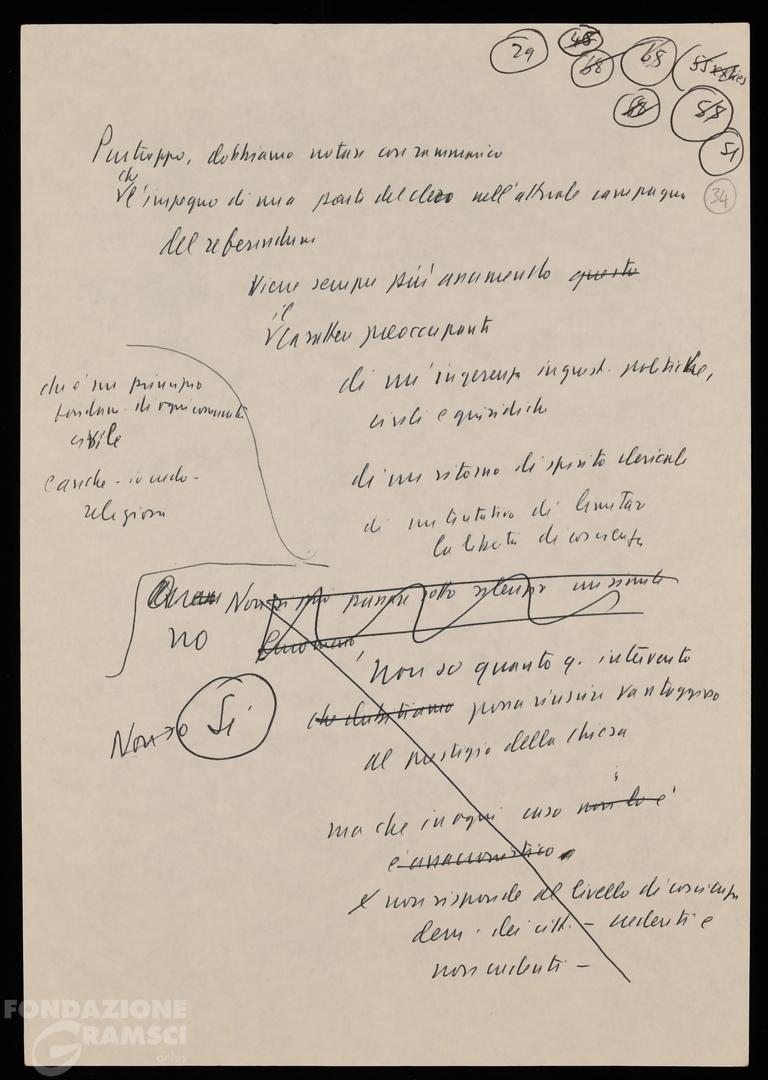 29
48
68
68
58
58
51
34
Purtroppo, dobbiamo notare con rammarico
che
l'impegno di una parte del clero nell'attuale campagna
del referendum
viene sempre più assumendo questo
il
carattere preoccupante
di un'ingerenza in quest. politiche,
civili e giuridiche
di un ritorno di spirito clericale
di un tentativo di limitare
la libertà di coscienza
che è un principio
fondam. di ogni comunità
civile
e anche - io credo -
religiosa
Non si può passare sotto silenzio un simile
no
fenomeno
Non so quanto q. intervento
che dubitiamo possa riuscire vantaggioso
al prestigio della Chiesa
Non so
Si
ma che in ogni caso non lo è
è anacronistico
e non risponde al livello di coscienza
dem. dei citt. - credenti e
non credenti -
FONDAZIONE
GRAMSCI
onlus